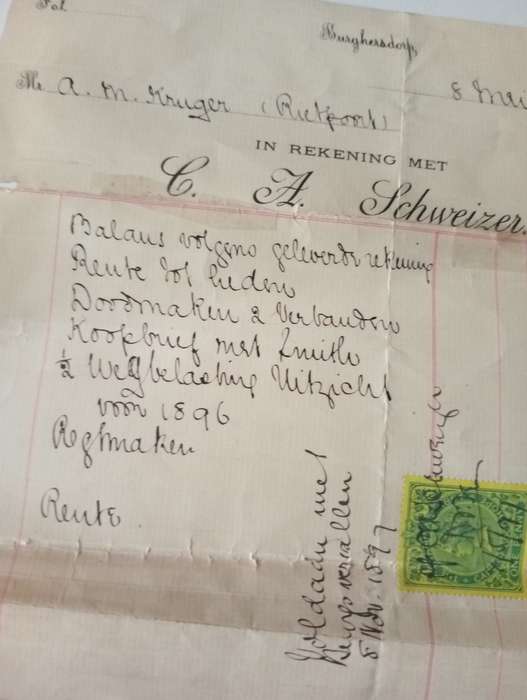 Fol
Burghersdorp,
8 Mei
Mr A. M. Kruger (Rietfont)
IN REKENING MET
C. A. Schweizer.
Balans volgens geleverde rekening
Rente tot heden
Doodmaken 2 Verbanden
Koopbrief met Smith
½ Wegbelasting Uitzicht
voor 1896
Regmaken
Rente
Voldaan met
vervallen
8 Nov. 1897